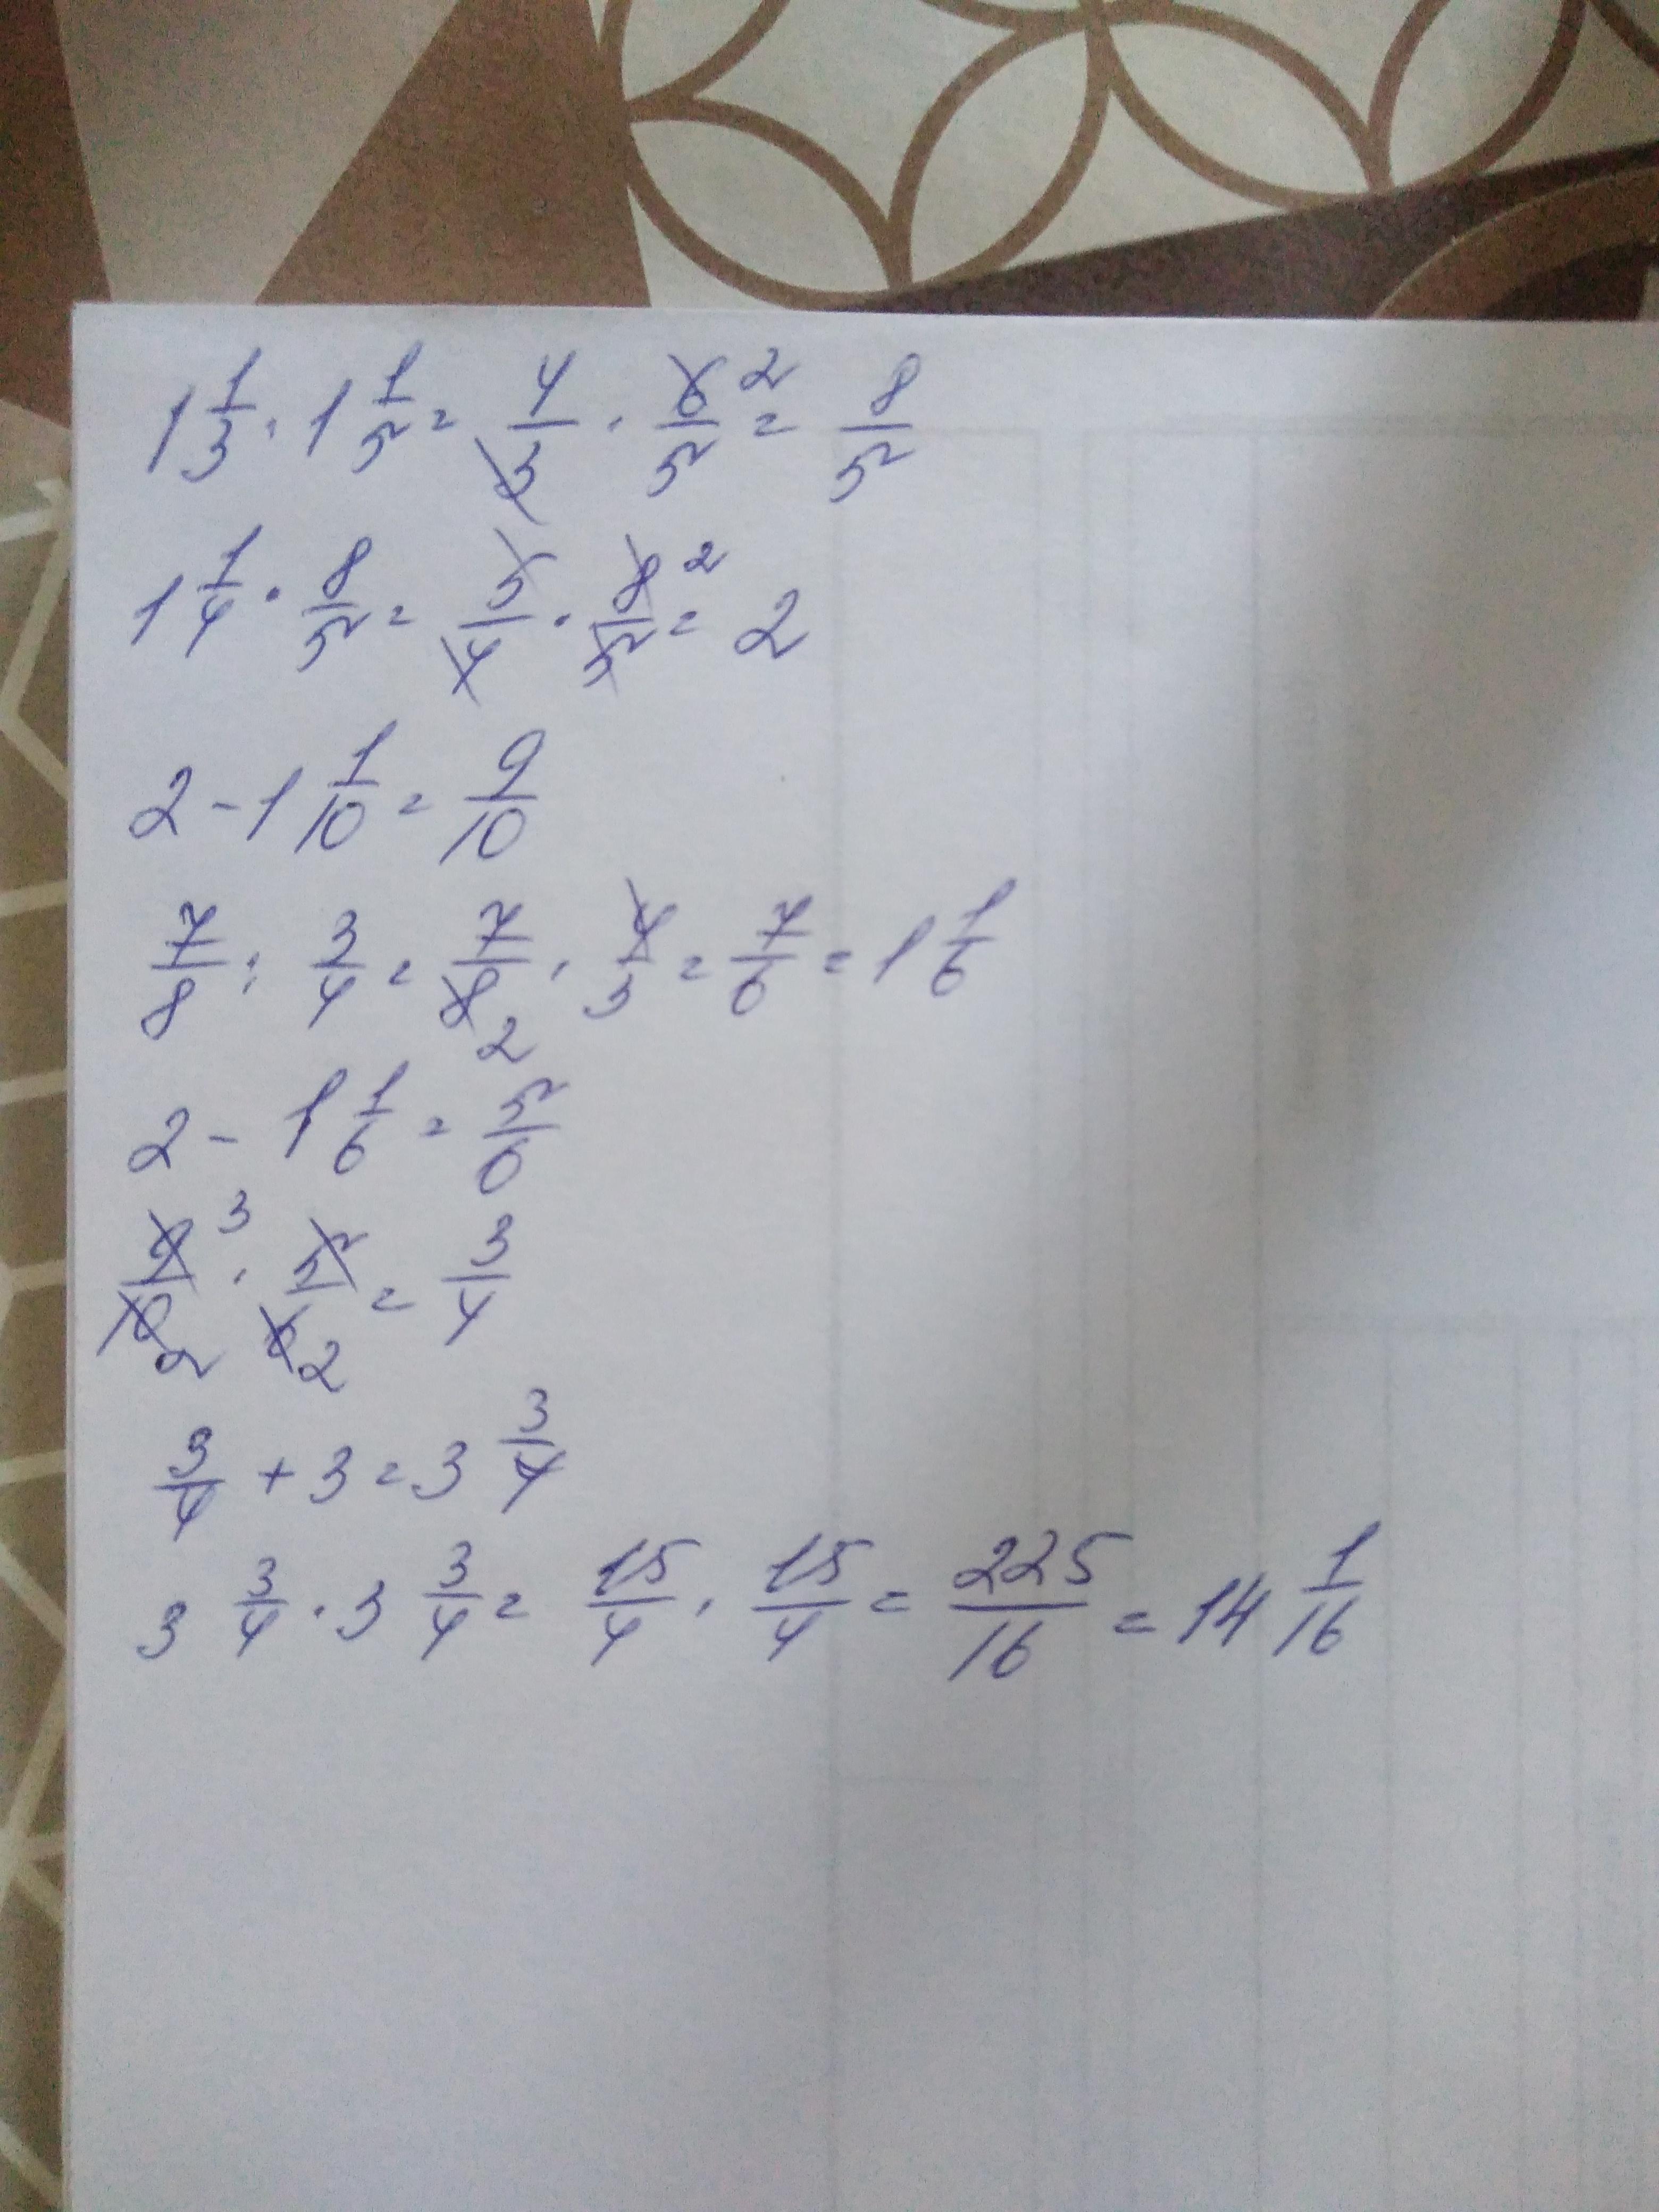 1 1/3 · 1 1/5 = 4/3 · 6/5 ² = 8/5
1 1/4 · 8/5 = 5/4 · 8/5 ² = 2
2 - 1 1/10 = 9/10
7/8 : 3/4 = 7/8 ₂ · 4/3 = 7/6 = 1 1/6
2 - 1 1/6 = 5/6
9/10 ³ ₂ · 5/6 ₂ = 3/4
3/4 + 3 = 3 3/4
3 3/4 · 3 3/4 = 15/4 · 15/4 = 225/16 = 14 1/16